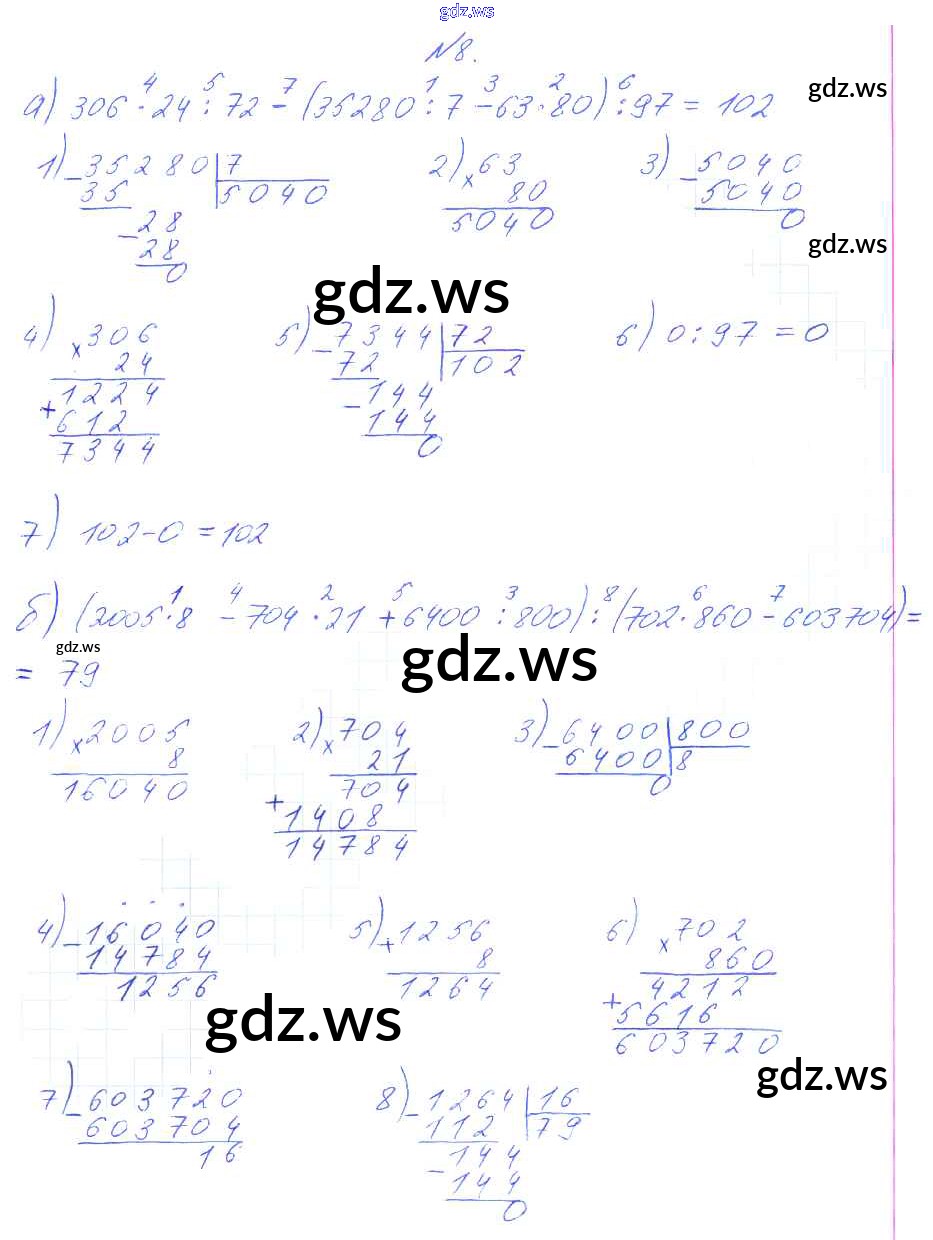 gdz.ws
№8.
4 5 7 1 3 2 6
а) 306 · 24 : 72 - (35280 : 7 - 63 · 80) : 97 = 102
gdz.ws
1) - 35280 | 7 2) × 63 3) - 5040
35 5040 80 5040
- 28 5040 0
28
0
gdz.ws
gdz.ws
4) × 306 5) - 7344 | 72 6) 0 : 97 = 0
24 72 102
1224 - 144
+ 612 144
7344 0
gdz.ws
7) 102 - 0 = 102
1 4 2 5 3 8 6 7
б) (2005 · 8 - 704 · 21 + 6400 : 800) : (702 · 860 - 603704) =
gdz.ws
gdz.ws
= 79
1) × 2005 2) × 704 3) - 6400 | 800
8 21 6400 8
16040 704 0
+ 1408
14784
4) - 16040 5) + 1256 6) × 702
14784 8 860
1256 1264 4212
+ 5616
603720
gdz.ws
gdz.ws
7) - 603720 8) - 1264 | 16
603704 112 79
16 - 144
144
0